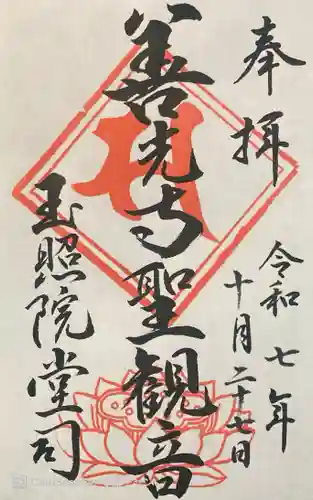 奉拝
令和七年
十月二十七日
善光寺聖観音
玉照院堂司